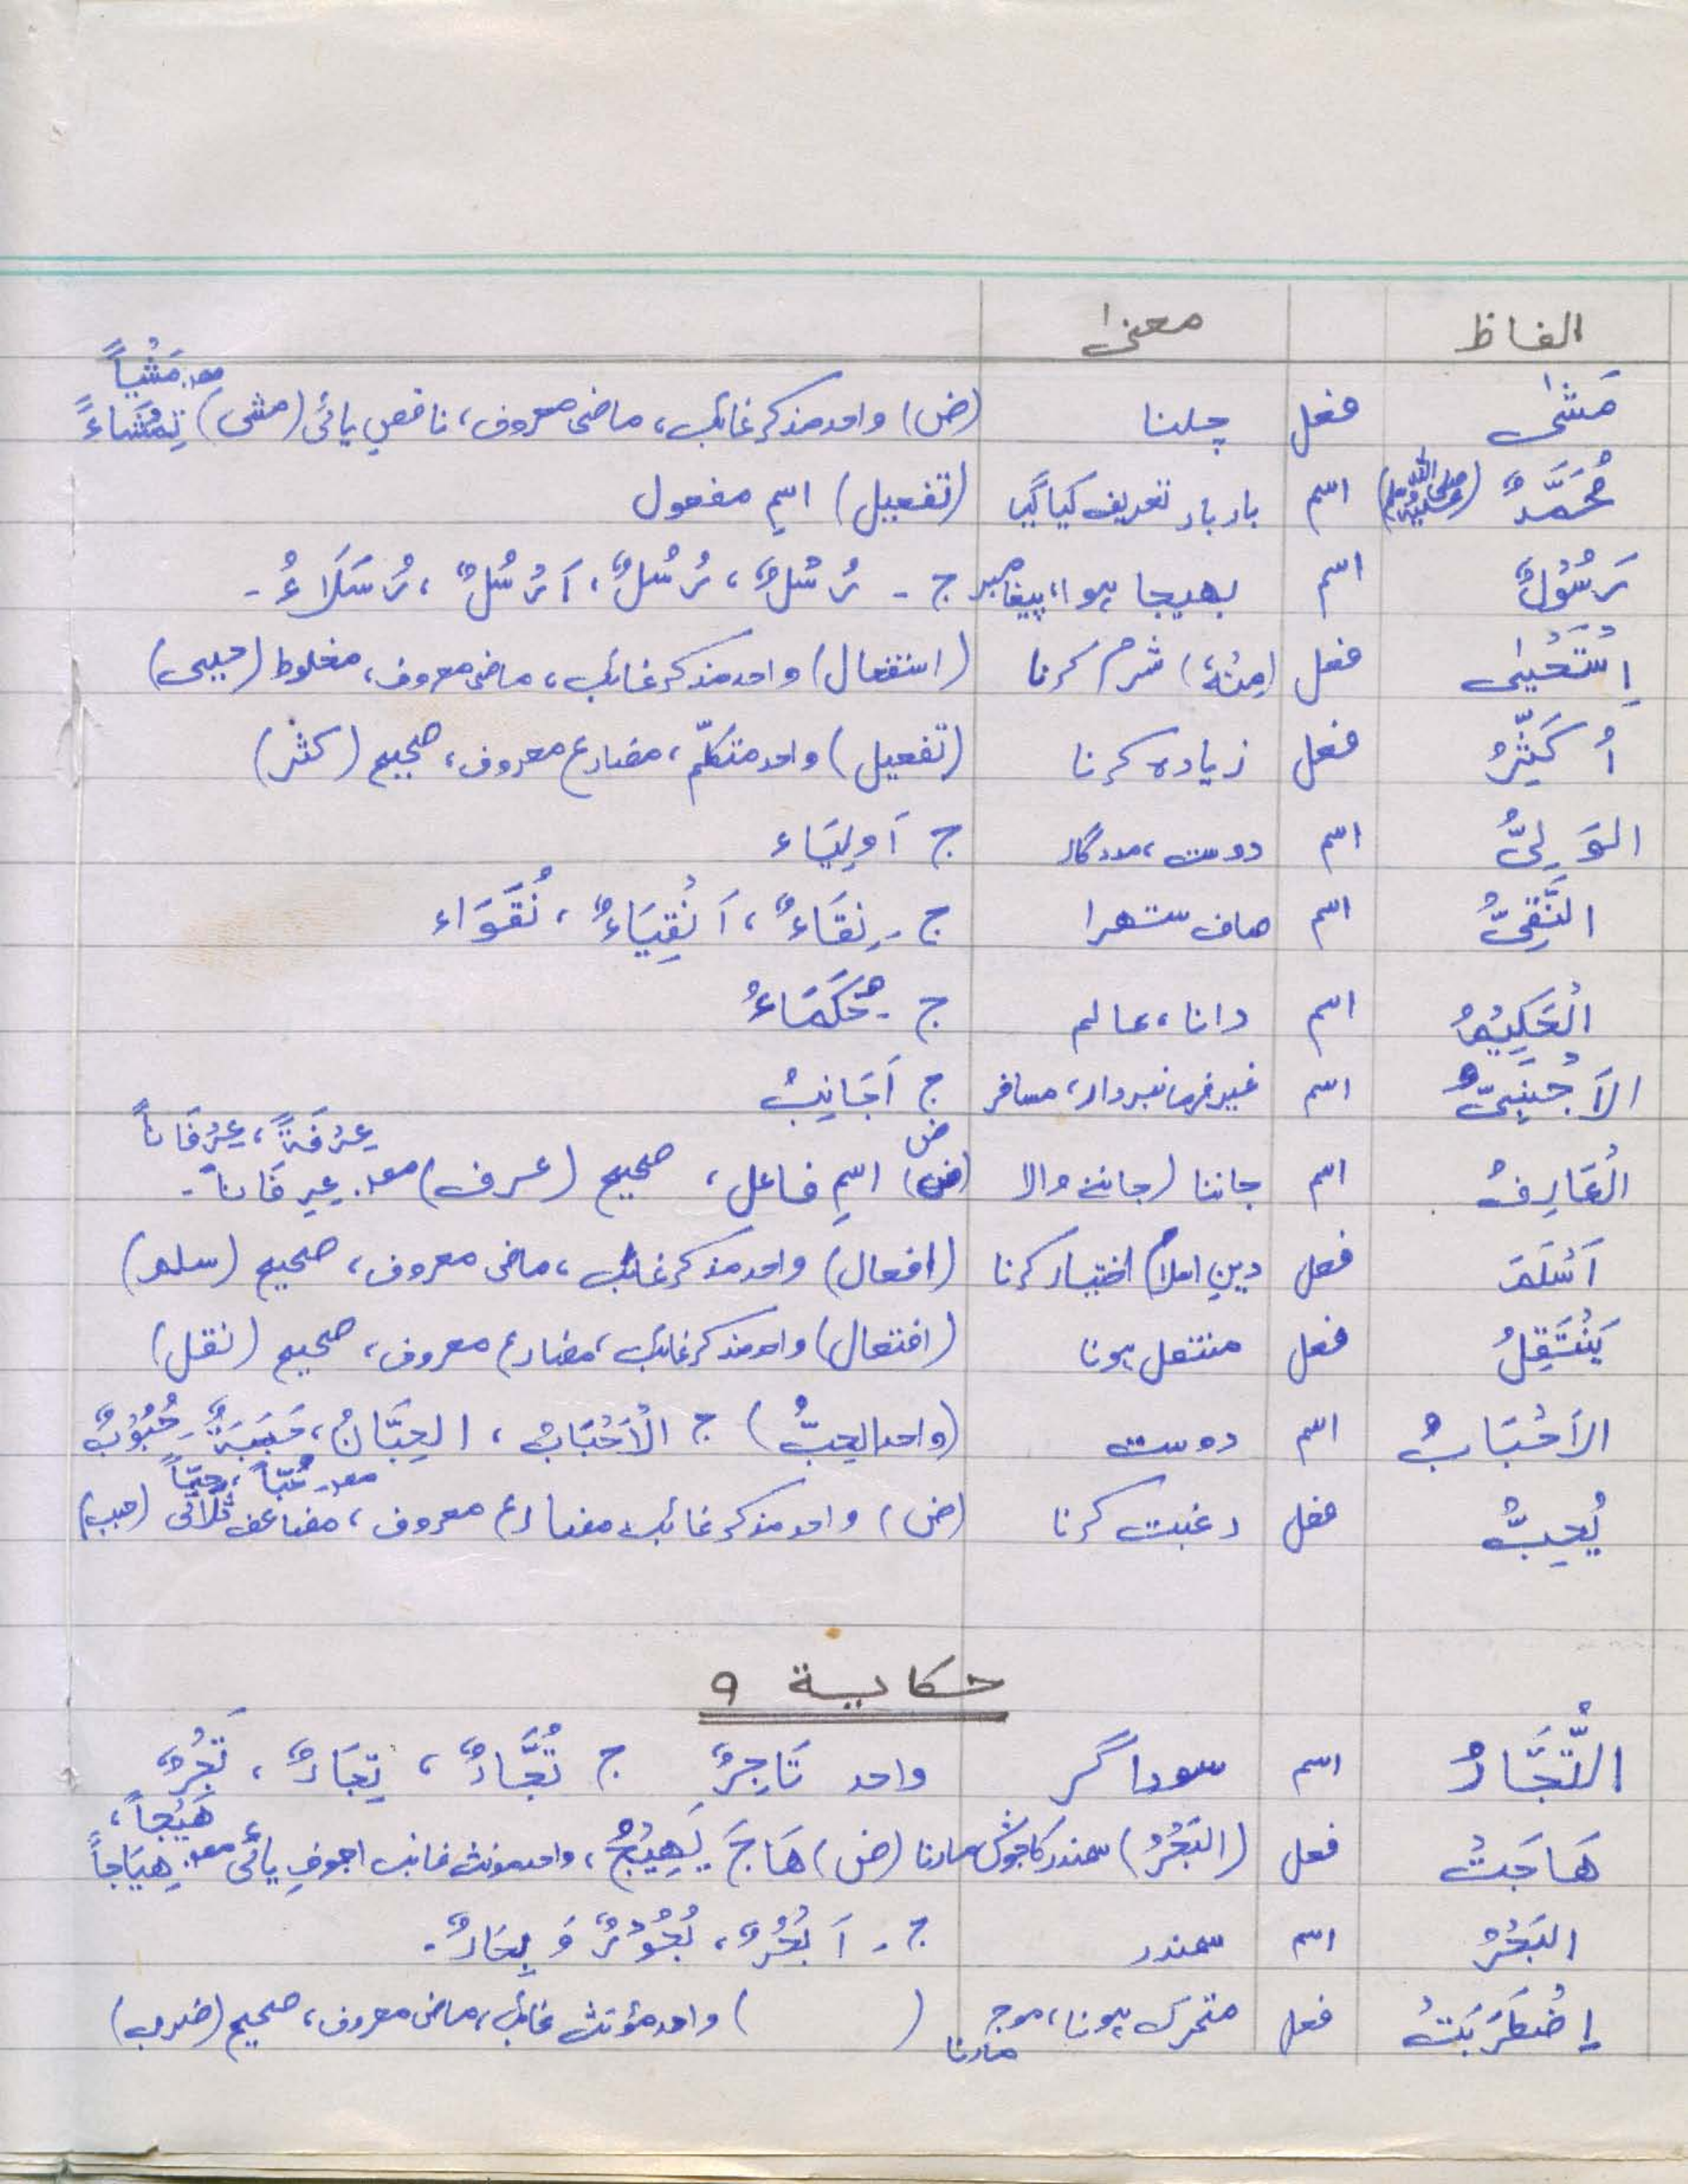 الفاظ معنیٰ
مَشٰی فعل چلنا (ض) واحد مذکر غائب، ماضی معروف، ناقص یائی (مشی) مصد. مَشْیاً تِمْشَاءً
مُحَمَّدٌ (صلی اللہ علیہ وسلم) اسم بار بار تعریف کیا گیا (تفعیل) اسمِ مفعول
رَسُوْلٌ اسم بھیجا ہوا، پیغامبر ج - رُسْلٌ، رُسُلٌ، اَرْسُلٌ، رُسَلَاءُ -
اِسْتَحْیٰی فعل (مِنْهُ) شرم کرنا (استفعال) واحد مذکر غائب، ماضی معروف، مخلوط (حیی)
اُکَثِّرُ فعل زیادہ کرنا (تفعیل) واحد متکلّم، مضارع معروف، صحیح (کثر)
الوَلِیُّ اسم دوست، مددگار ج اَولِیَاء
النَّقِیُّ اسم صاف ستھرا ج - نِقَاءٌ، اَنْقِیَاءٌ، نُقَوَاء
الْحَکِیْمُ اسم دانا، عالم ج - حُکَمَاءُ
الاَجْنَبِیُّ اسم غیر فرمانبردار، مسافر ج اَجَانِبُ
الْعَارِفُ اسم جاننا (جاننے والا (ض) اسمِ فاعل، صحیح (عرف) مصد. عِرْفَةً، عِرْفَاناً عِرِفَاناً -
اَسْلَمَ فعل دینِ اسلام اختیار کرنا (افعال) واحد مذکر غائب، ماضی معروف، صحیح (سلم)
یَنْتَقِلُ فعل منتقل ہونا (افتعال) واحد مذکر غائب، مضارع معروف، صحیح (نقل)
الاَحْبَابُ اسم دوست (واحد الحِبُّ) ج الْاَحْبَابُ، الحِبَّانُ، حَبَبَةٌ، حُبُوْبٌ
یُحِبُّ فعل رغبت کرنا (ض) واحد مذکر غائب مضارع معروف، مضاعف ثلاثی (حبب) مصد. حُبّاً، حِبّاً
حکایة ۹
التُّجَّارُ اسم سوداگر واحد تَاجِرٌ ج تُجَّارٌ، تِجَارٌ، تَجْرٌ
هَاجَتْ فعل (البَحْرُ) سمندر کا جوش مارنا (ض) هَاجَ یَهِیْجُ، واحد مونث غائب اجوفِ یائی مصد. هَیْجاً، هِیَاجاً
البَحْرُ اسم سمندر ج - اَبْحُرٌ، بُحُوْرٌ وَ بِحَارٌ -
اِضْطَرَبَتْ فعل متحرک ہونا، موج مارنا ( ) واحد مؤنث غائب، ماضی معروف، صحیح (ضرب)